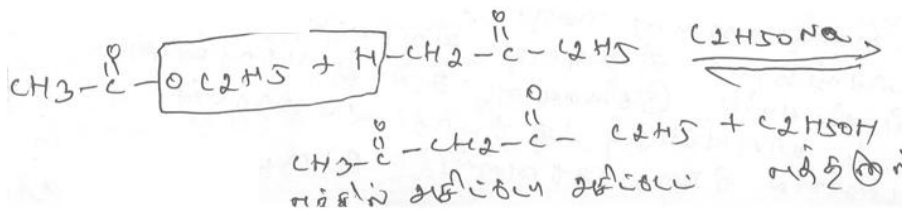 CH3-C(=O)-OC2H5 + H-CH2-C(=O)-C2H5 C2H5ONa
CH3-C(=O)-CH2-C(=O)-C2H5 + C2H5OH
எத்தில் அசிட்டோ அசிட்டேட்